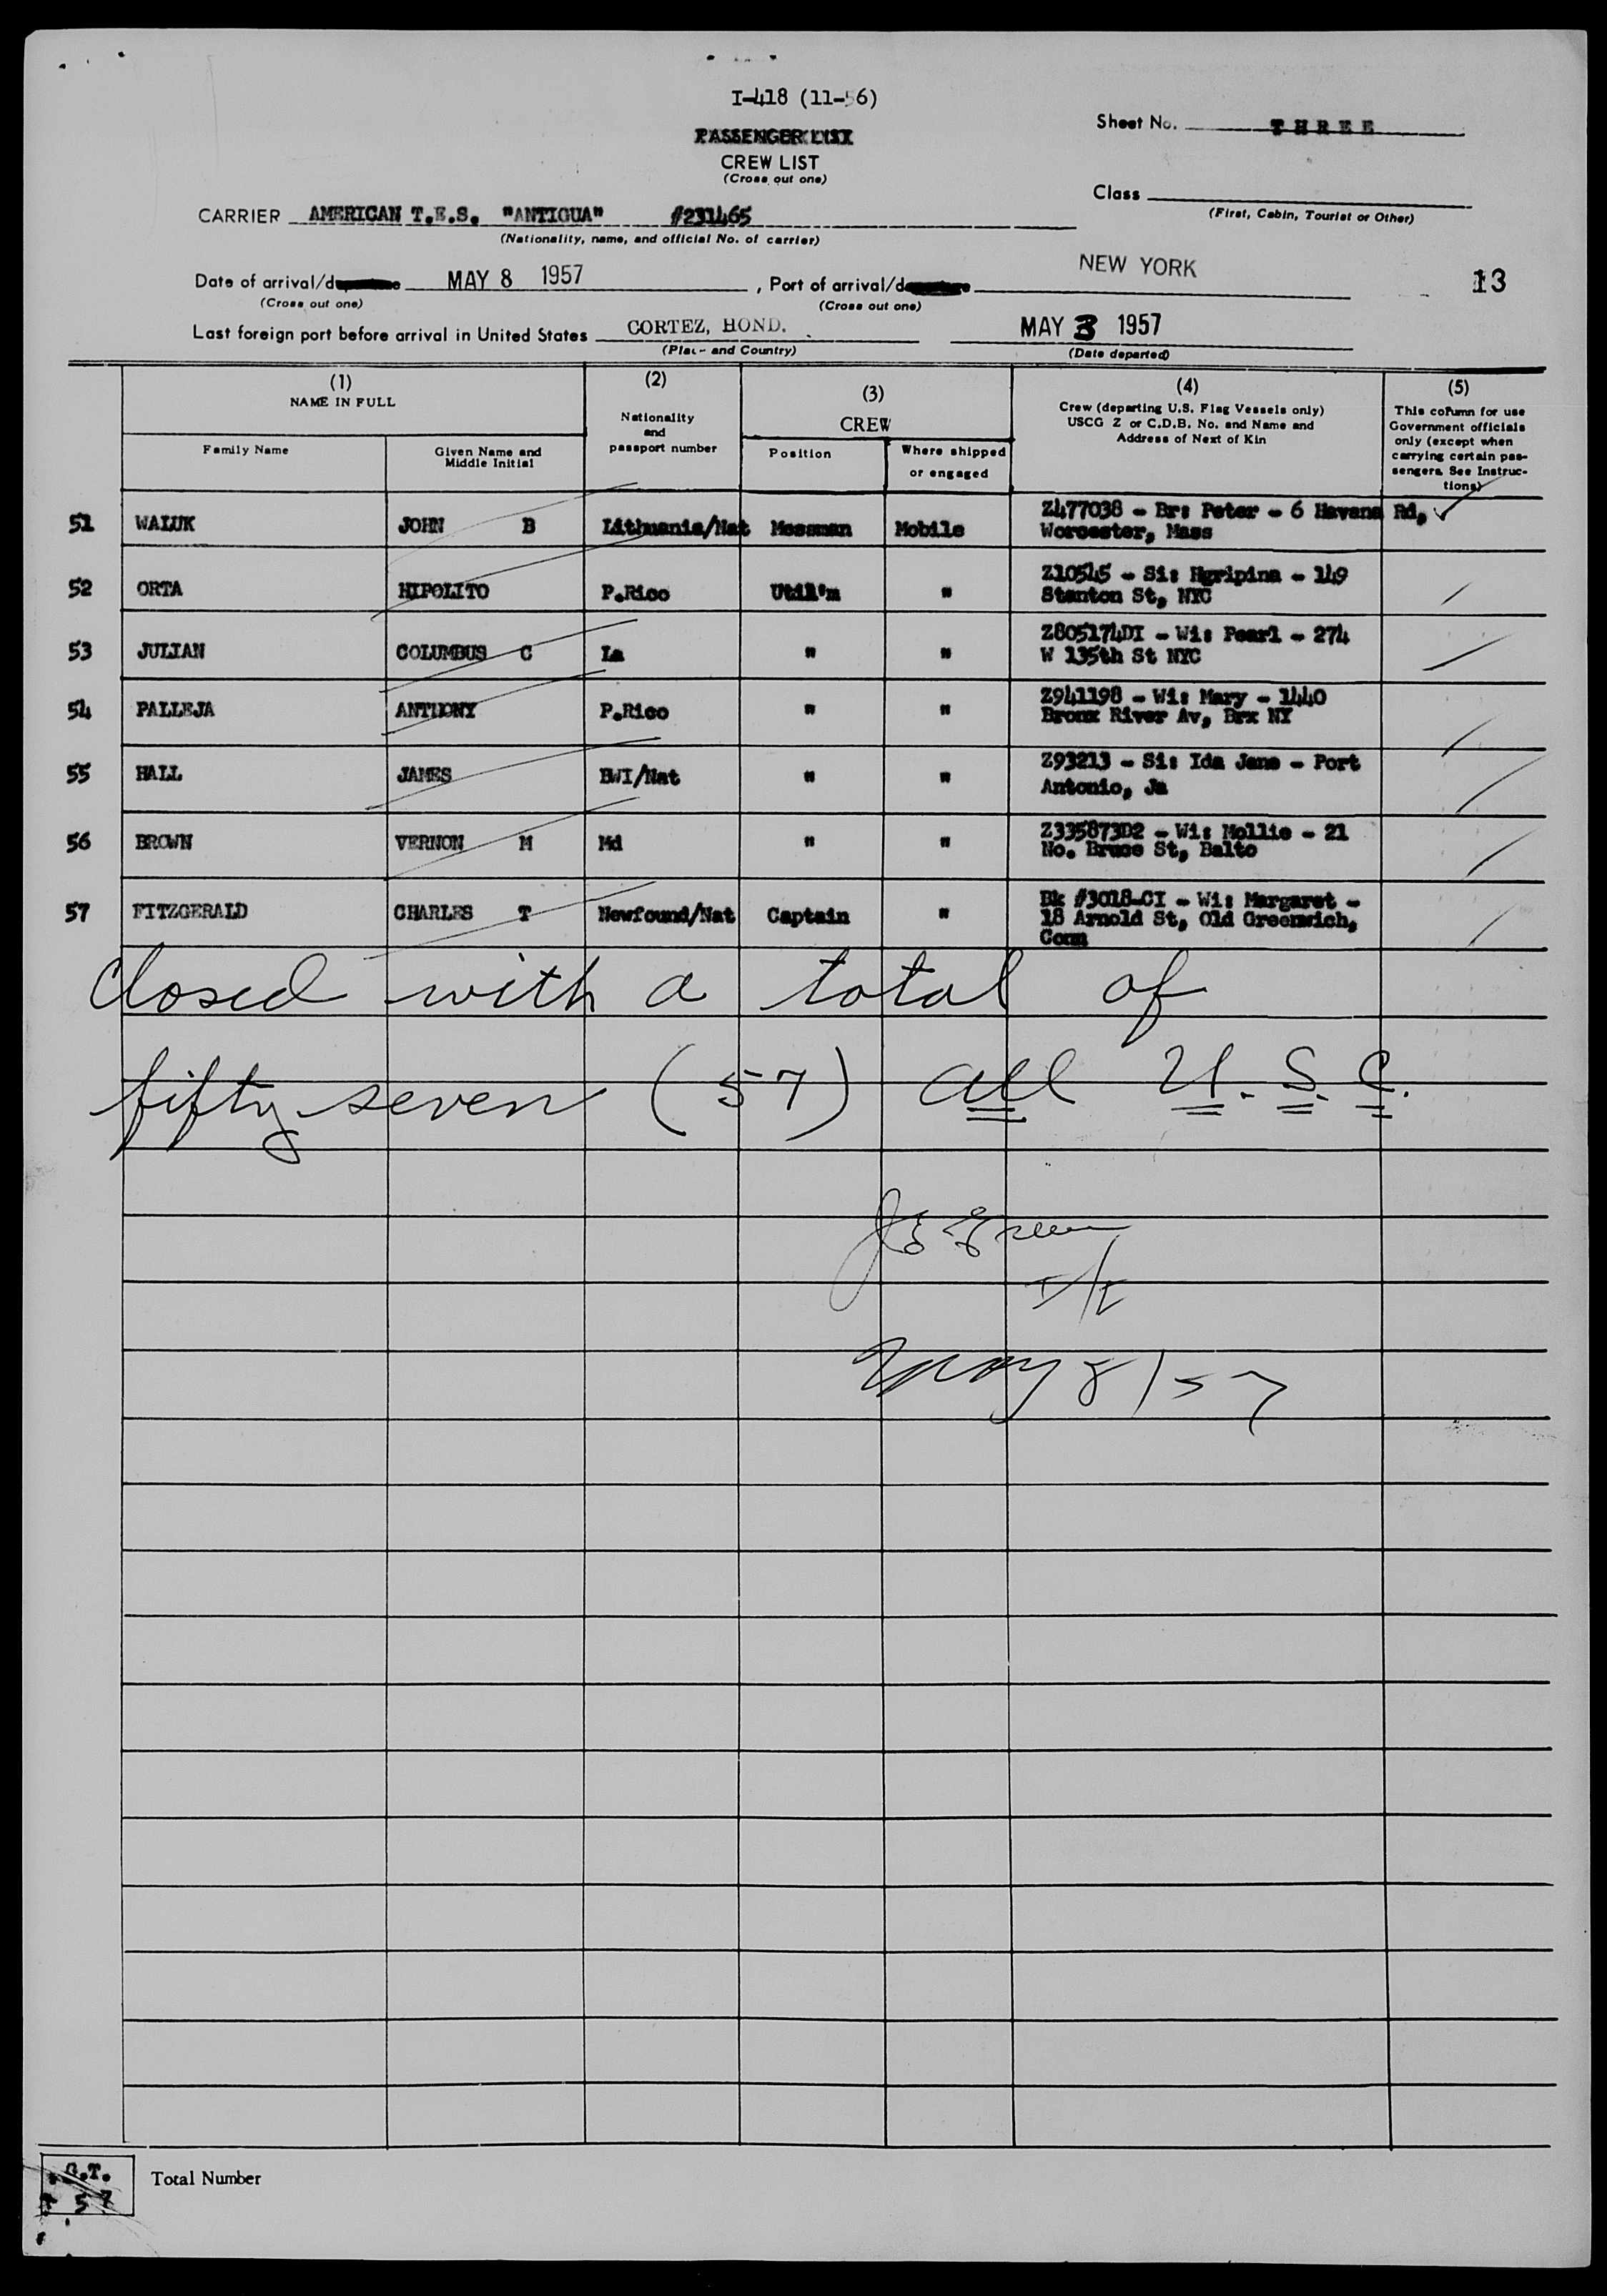 I-418 (11-56)
Sheet No. THREE
PASSENGER LIST
CREW LIST
(Cross out one)
Class
(First, Cabin, Tourist or Other)
CARRIER AMERICAN T.E.S. "ANTIGUA" #231465
(Nationality, name, and official No. of carrier)
Date of arrival/departure MAY 8 1957, Port of arrival/departure NEW YORK 13
(Cross out one) (Cross out one)
Last foreign port before arrival in United States CORTEZ, HOND. MAY 3 1957
(Place and Country) (Date departed)
(1) NAME IN FULL
Family Name
Given Name and Middle Initial
(2)
Nationality and passport number
(3)
CREW
Position
Where shipped or engaged
(4)
Crew (departing U.S. Flag Vessels only)
USCG Z or C.D.B. No. and Name and
Address of Next of Kin
(5)
This column for use
Government officials
only (except when
carrying certain pas-
sengers. See Instruc-
tions)
51 WALUK JOHN B Lithuania/Nat Messman Mobile Z477038 - Br: Peter - 6 Havana Rd,
Worcester, Mass
52 ORTA HIPOLITO P.Rico Util'm " Z10545 - Si: Hgripina - 149
Stanton St, NYC
53 JULIAN COLUMBUS C La " " Z805174DI - Wi: Pearl - 274
W 135th St NYC
54 PALLEJA ANTHONY P.Rico " " Z941198 - Wi: Mary - 1440
Bronx River Av, Brx NY
55 HALL JAMES BWI/Nat " " Z93213 - Si: Ida Jane - Port
Antonio, Ja
56 BROWN VERNON M Md " " Z335873D2 - Wi: Mollie - 21
No. Bruce St, Balto
57 FITZGERALD CHARLES T Newfound/Nat Captain " Bk #3018-CI - Wi: Margaret -
18 Arnold St, Old Greenwich,
Conn
Closed with a total of
fifty seven (57) all U.S.C.
May 8/57
Total Number